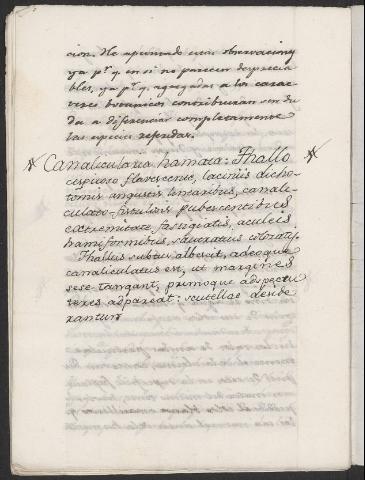 cion. He apuntado estas observaciones
ya pr. q. en si no parecen desprecia
bles, ya pr. q. agregadas a los carac
teres botanicos contribuiran sin du
da a diferenciar completamente
las especies referidas.
Canalicularia hamata: Thallo
cespuoso flavescente, laciniis dicho-
tomis angustis linearibus, canali-
culato-fistulosis pubescentibus
extremitate fastigiatis, aculeis
hamiformibus,
Thallus subtus albescit, adeoque
canaliculatus est, ut margines
sese tangant, primoque adspectu
teres adpareat: scutellae deside
rantur